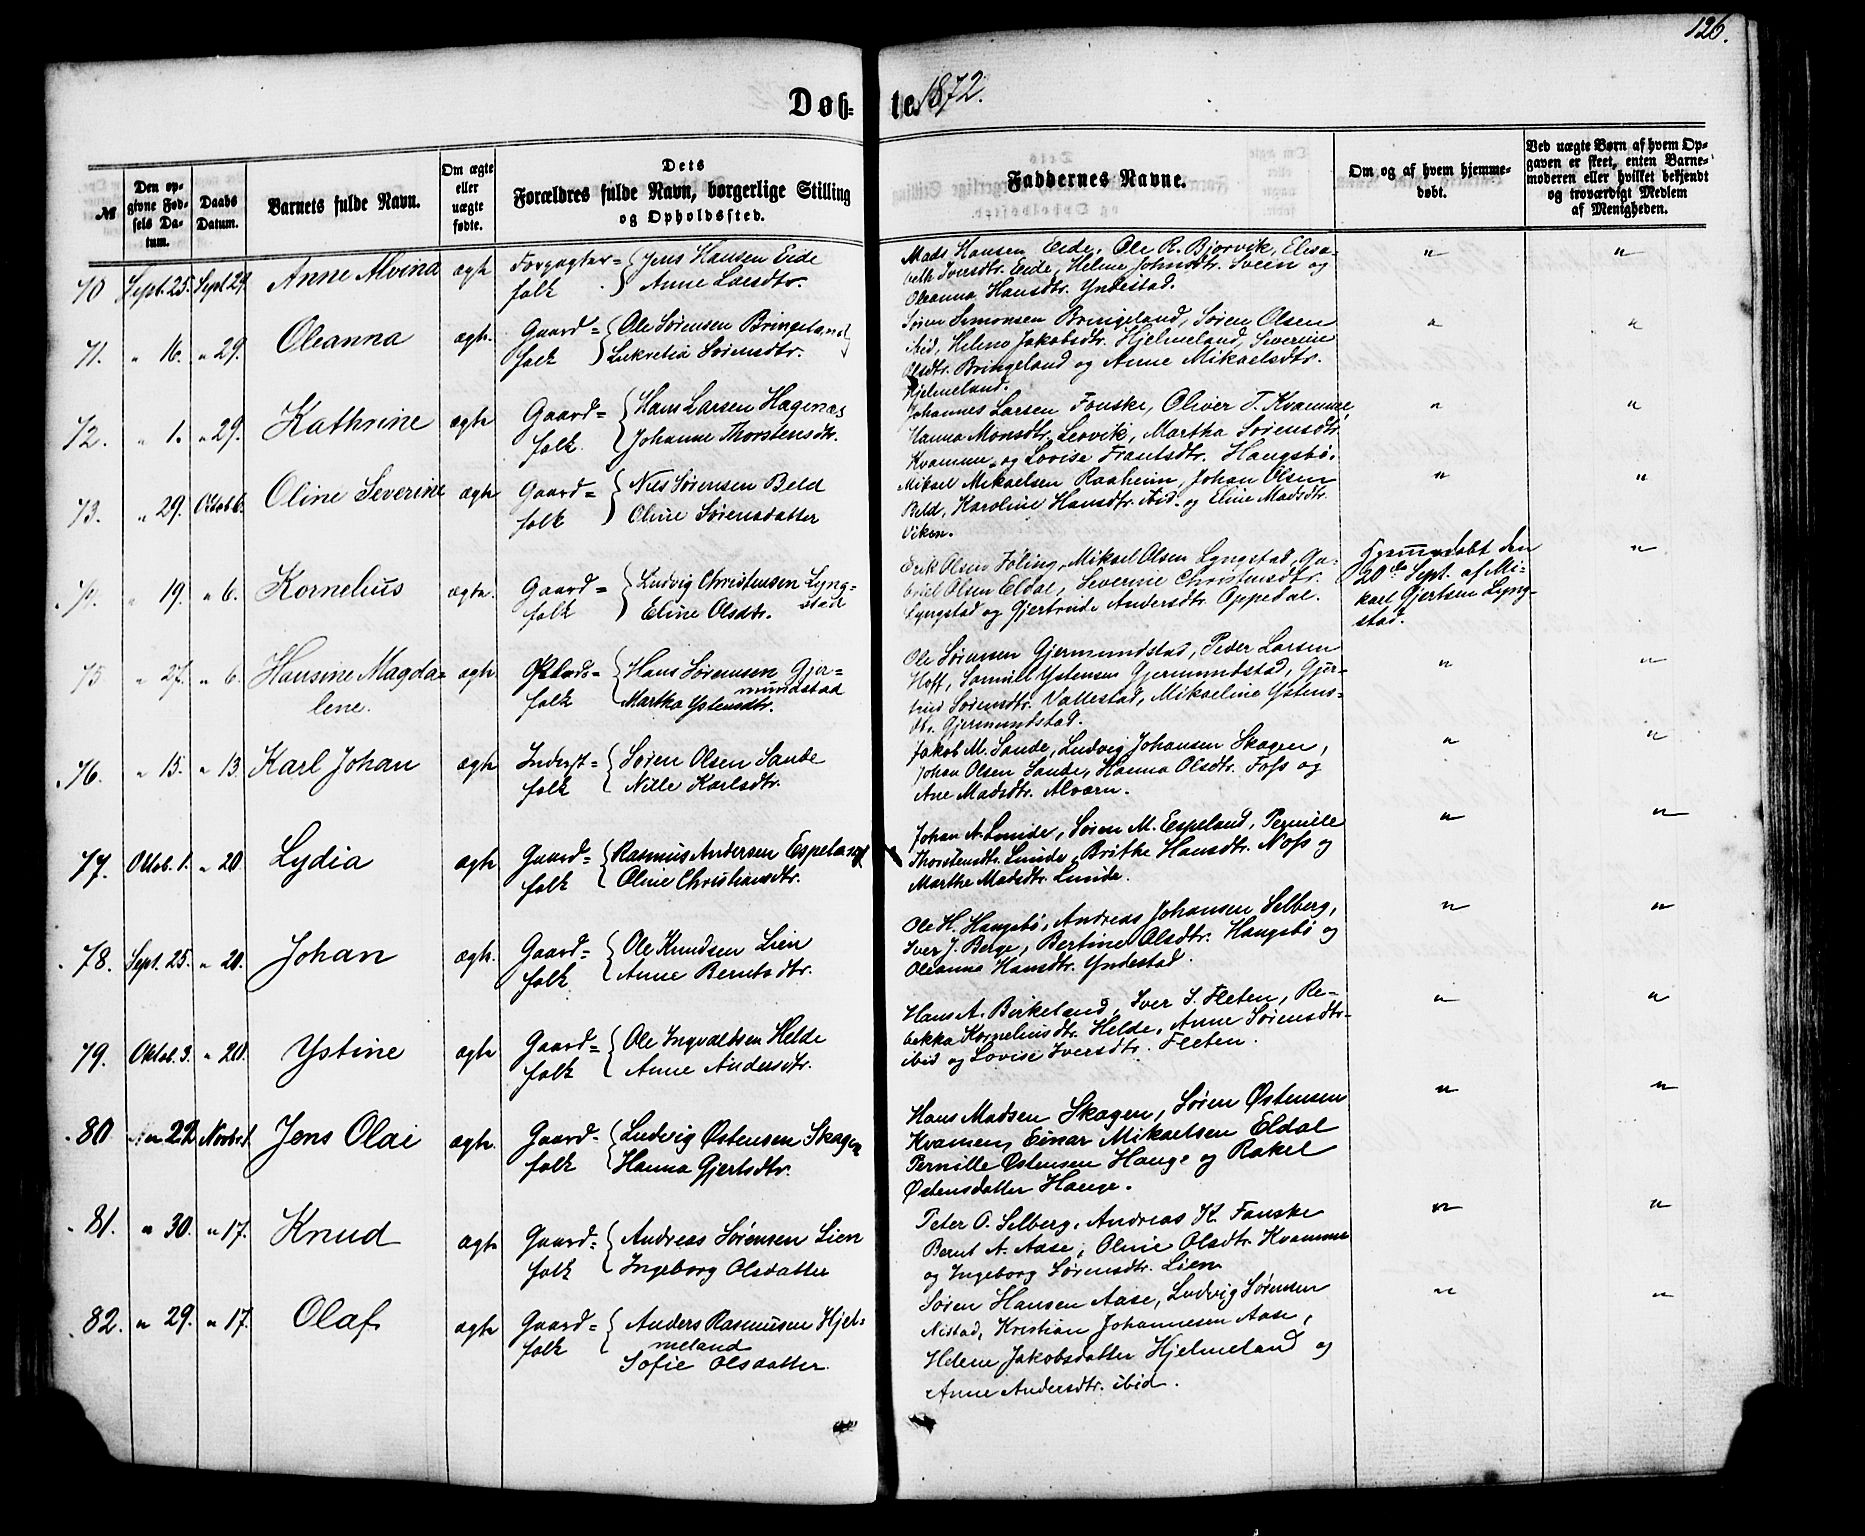 126.
Døb-
te. 1872.
№
Den op-
givne Fød-
sels Da-
tum.
Daabs
Datum.
Barnets fulde Navn.
Om ægte
eller
uægte
fødte.
Dets
Forældres fulde Navn, borgerlige Stilling
og Opholdssted.
Faddernes Navne.
Om og af hvem hjemme-
døbt.
Ved uægte Børn af hvem Op-
gaven er skeet, enten Barne-
moderen eller hvilket bekjendt
og troværdigt Medlem
af Menigheden.
70 Sept. 25. Sept 29. Anne Alvina ægte Forpagter= folk { Jens Hansen Eide
Anne Larsdtr.
Mads Hansen Eide, Ole R. Bjørvik, Elisa-
beth Iversdtr. Eide, Helene Johnsdtr. Svein og
Oleanna Hansdtr. Yndestad.
" "
71. " 16. " 29. Oleanna ægte. Gaard= folk { Ole Sørensen Bringeland
Lukretia Sørensdtr.
Søren Simonsen Bringeland, Søren Olsen
ibid, Helene Jakobsdtr. Hjelmeland, Severine
Olsdtr. Bringeland og Anne Mikaelsdtr.
Hjelmeland.
" "
72. " 1. " 29. Kathrine ægte Gaard= folk. { Hans Larsen Hagenæs
Johanne Thorstensdtr.
Johannes Larsen Fonske, Oliver T. Kvamme
Hanna Monsdtr. Leovik, Martha Sørensdtr.
Kvamme, og Lovise Frantsdtr. Haugsbø.
" "
73. " 29. Oktob 6. Oline Severine ægte Gaard= folk { Nils Sørensen Beld
Oline Sørensdatter
Miksel Mikaelsen Raaheim, Johan Olsen
Beld, Karoline Hansdtr. ibid. og Eline Madsdtr.
Viken.
" "
74. " 19. " 6. Kornelius ægte. Gaard= folk { Ludvig Christensen Lyng-
stad
Eline Olsdtr.
Erik Olsen Föling, Miksel Olsen Lyngstad, Ga-
briel Olsen Eldal, Severine Christensdtr.
Lyngstad og Gjertrude Andersdtr. Oppedal.
Hjemmedøbt den
20de Sept. af Mi-
kael Gjertsen Lyng-
stad.
"
75 " 27. " 6. Hansine Magda-
lene. ægte folk { Hans Sørensen Gjer-
mundstad
Martha Ystensdtr.
Ole Sørensen Gjermundstad, Peder Larsen
Hoff, Samuel Ystensen Gjermundstad, Gjør-
Sørensdtr. Vallestad, Mikaeline Ystens-
dtr. Gjermundstad.
" "
76. " 15. " 13. Karl Johan ægte Inderst= folk { Søren Olsen Sande
Nille Karlsdtr.
Jakob M. Sande, Ludvig Johansen Skagen,
Johan Olsen Sande, Hanna Olsdtr. Foss og
Ane Madsdtr. Alværn.
" "
77. Oktob. 1. " 20. Lydia ægte Gaard= folk { Rasmus Andersen Espeland
Oline Christiansdtr.
Johan A. Lunde, Søren M. Espeland, Pernille
Thorstensdtr. Lunde, Brithe Hansdtr. Noss og
Marthe Madsdtr. Lunde.
" "
78. Sept. 25. " 20. Johan ægte. Gaard= folk. { Ole Knudsen Lien
Anne Berntsdtr.
Ole H. Haugsbø, Andreas Johansen Selberg,
Iver J. Berge, Bertine Olsdtr. Haugsbø og
Oleanna Hansdtr. Yndestad.
" "
79. Oktob. 3. " 20. Ystine ægte Gaard= folk { Ole Ingvaldsen Helde
Anne Andersdtr.
Hans A. Birkeland, Iver S. Fleten, Re-
bekka Korneliusdtr. Helde, Anne Sørensdtr.
ibid og Lovise Iversdtr. Fleten.
" "
80 22 Novbr 1. Jens Olai ægte. Gaard= folk { Ludvig Østensen Skagen
Hanna Gjertsdtr.
Hans Madsen Skagen, Søren Østensen
Kvamen, Einar Mikaelsen Eldal
Pernille Østensen Hauge og Rakel
Østensdatter Hauge.
" "
81. " 30. " 17. Knud ægte Gaard= folk { Andreas Sørensen Lien
Ingeborg Olsdatter
Peter O. Selberg, Andreas K. Fonske
Bernt A. Aase, Oline Olsdtr. Kvamme
og Ingeborg Sørensdtr. Lien
" "
82. " 29. " 17. Olaf ægte Gaard= folk { Anders Rasmusen Hjel-
meland
Sofie Olsdatter.
Søren Hansen Aase, Ludvig Sørensen
Nistad, Kristian Johannesen Aase,
Helene Jakobsdatter Hjelmeland og
Anne Andersdtr. ibid.
" "